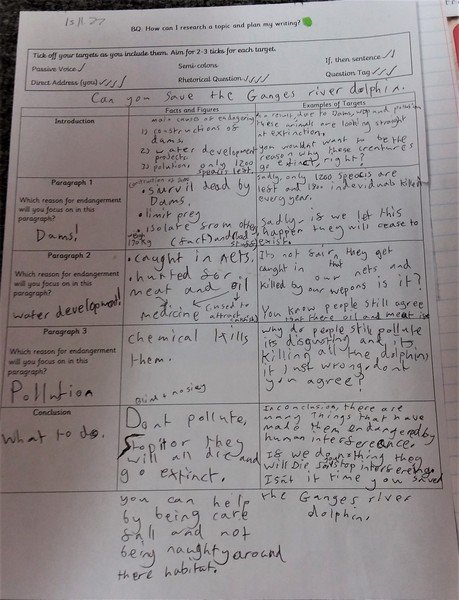 15.11.22
BQ. How can I research a topic and plan my writing?
Tick off your targets as you include them. Aim for 2-3 ticks for each target.
Passive Voice ✓
Semi-colons
If, then sentence ✓
Direct Address (you) ✓✓✓
Rhetorical Question ✓✓✓✓
Question Tag ✓✓✓
Can you save the Ganges river dolphin.
Facts and Figures
Examples of Targets
Introduction
main causes of endangering
1) constructions of
dams.
2) water development
projects
3) polution. only 1200
left
As a result due to Dams, and polution
these animals are looking straight
at extinction.
you wouldnt want to be the
reason why these creatures
go extinct, right?
Paragraph 1
Which reason for endangerment
will you focus on in this
paragraph?
Dams!
Construction of
dead by
Dams.
• limit prey
• isolate from other
(fact) and
170 kg
Sadly, only 1200
left and individuals killed
every year.
Sadly, if we let this
happer they will cease to
exist.
Paragraph 2
Which reason for endangerment
will you focus on in this
paragraph?
water development!
• caught in nets.
• hunted for
meat and oil
medicine
(used to
attract
It's not fair they get
caught in our nets and
killed by our wepons is it?
You know people still
that there oil and meat is
Paragraph 3
Which reason for endangerment
will you focus on in this
paragraph?
Pollution
chemical kills
them.
Why do people still pollute
its disgusting and its
killing all the dolphins
it just wrong dont
you agree?
Conclusion
What to do.
Dont pollute,
Stop it or they
will all die and
go extinct.
you can help
by being care
full and not
being naughty around
there habitat.
In conclusion, there are
many Things that have
made them endangered by
human interference.
If we do nothing they
will Die, stop interfering
Isnt it time you saved
the Ganges river
dolphin.